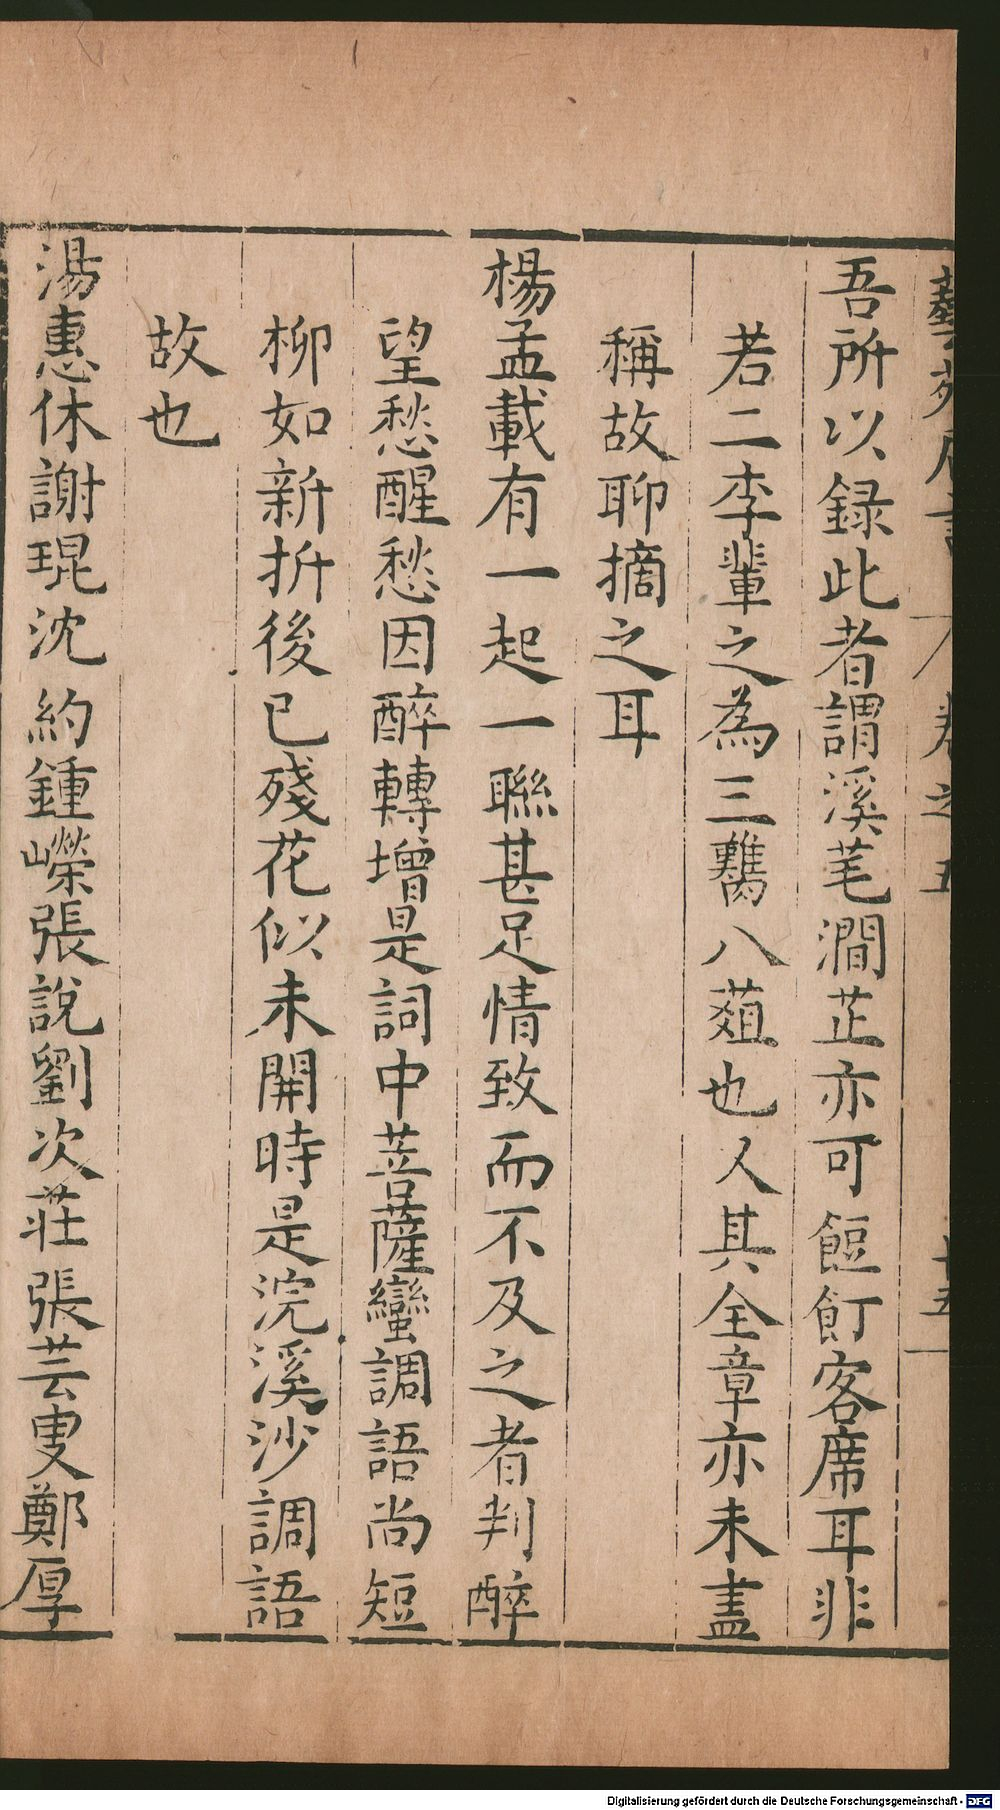 藝苑巵言 卷之五 十五
吾所以録此者謂溪芼澗芷亦可餖飣客席耳非
若二李輩之為三臡八葅也人其全章亦未盡
稱故聊摘之耳
楊孟載有一起一聯甚足情致而不及之者判醉
望愁醒愁因醉轉增是詞中菩薩蠻調語尚短
柳如新折後已殘花似未開時是浣溪沙調語
故也
湯惠休謝琨沈約鍾嶸張說劉次莊張芸叟鄭厚
Digitalisierung gefördert durch die Deutsche Forschungsgemeinschaft - DFG